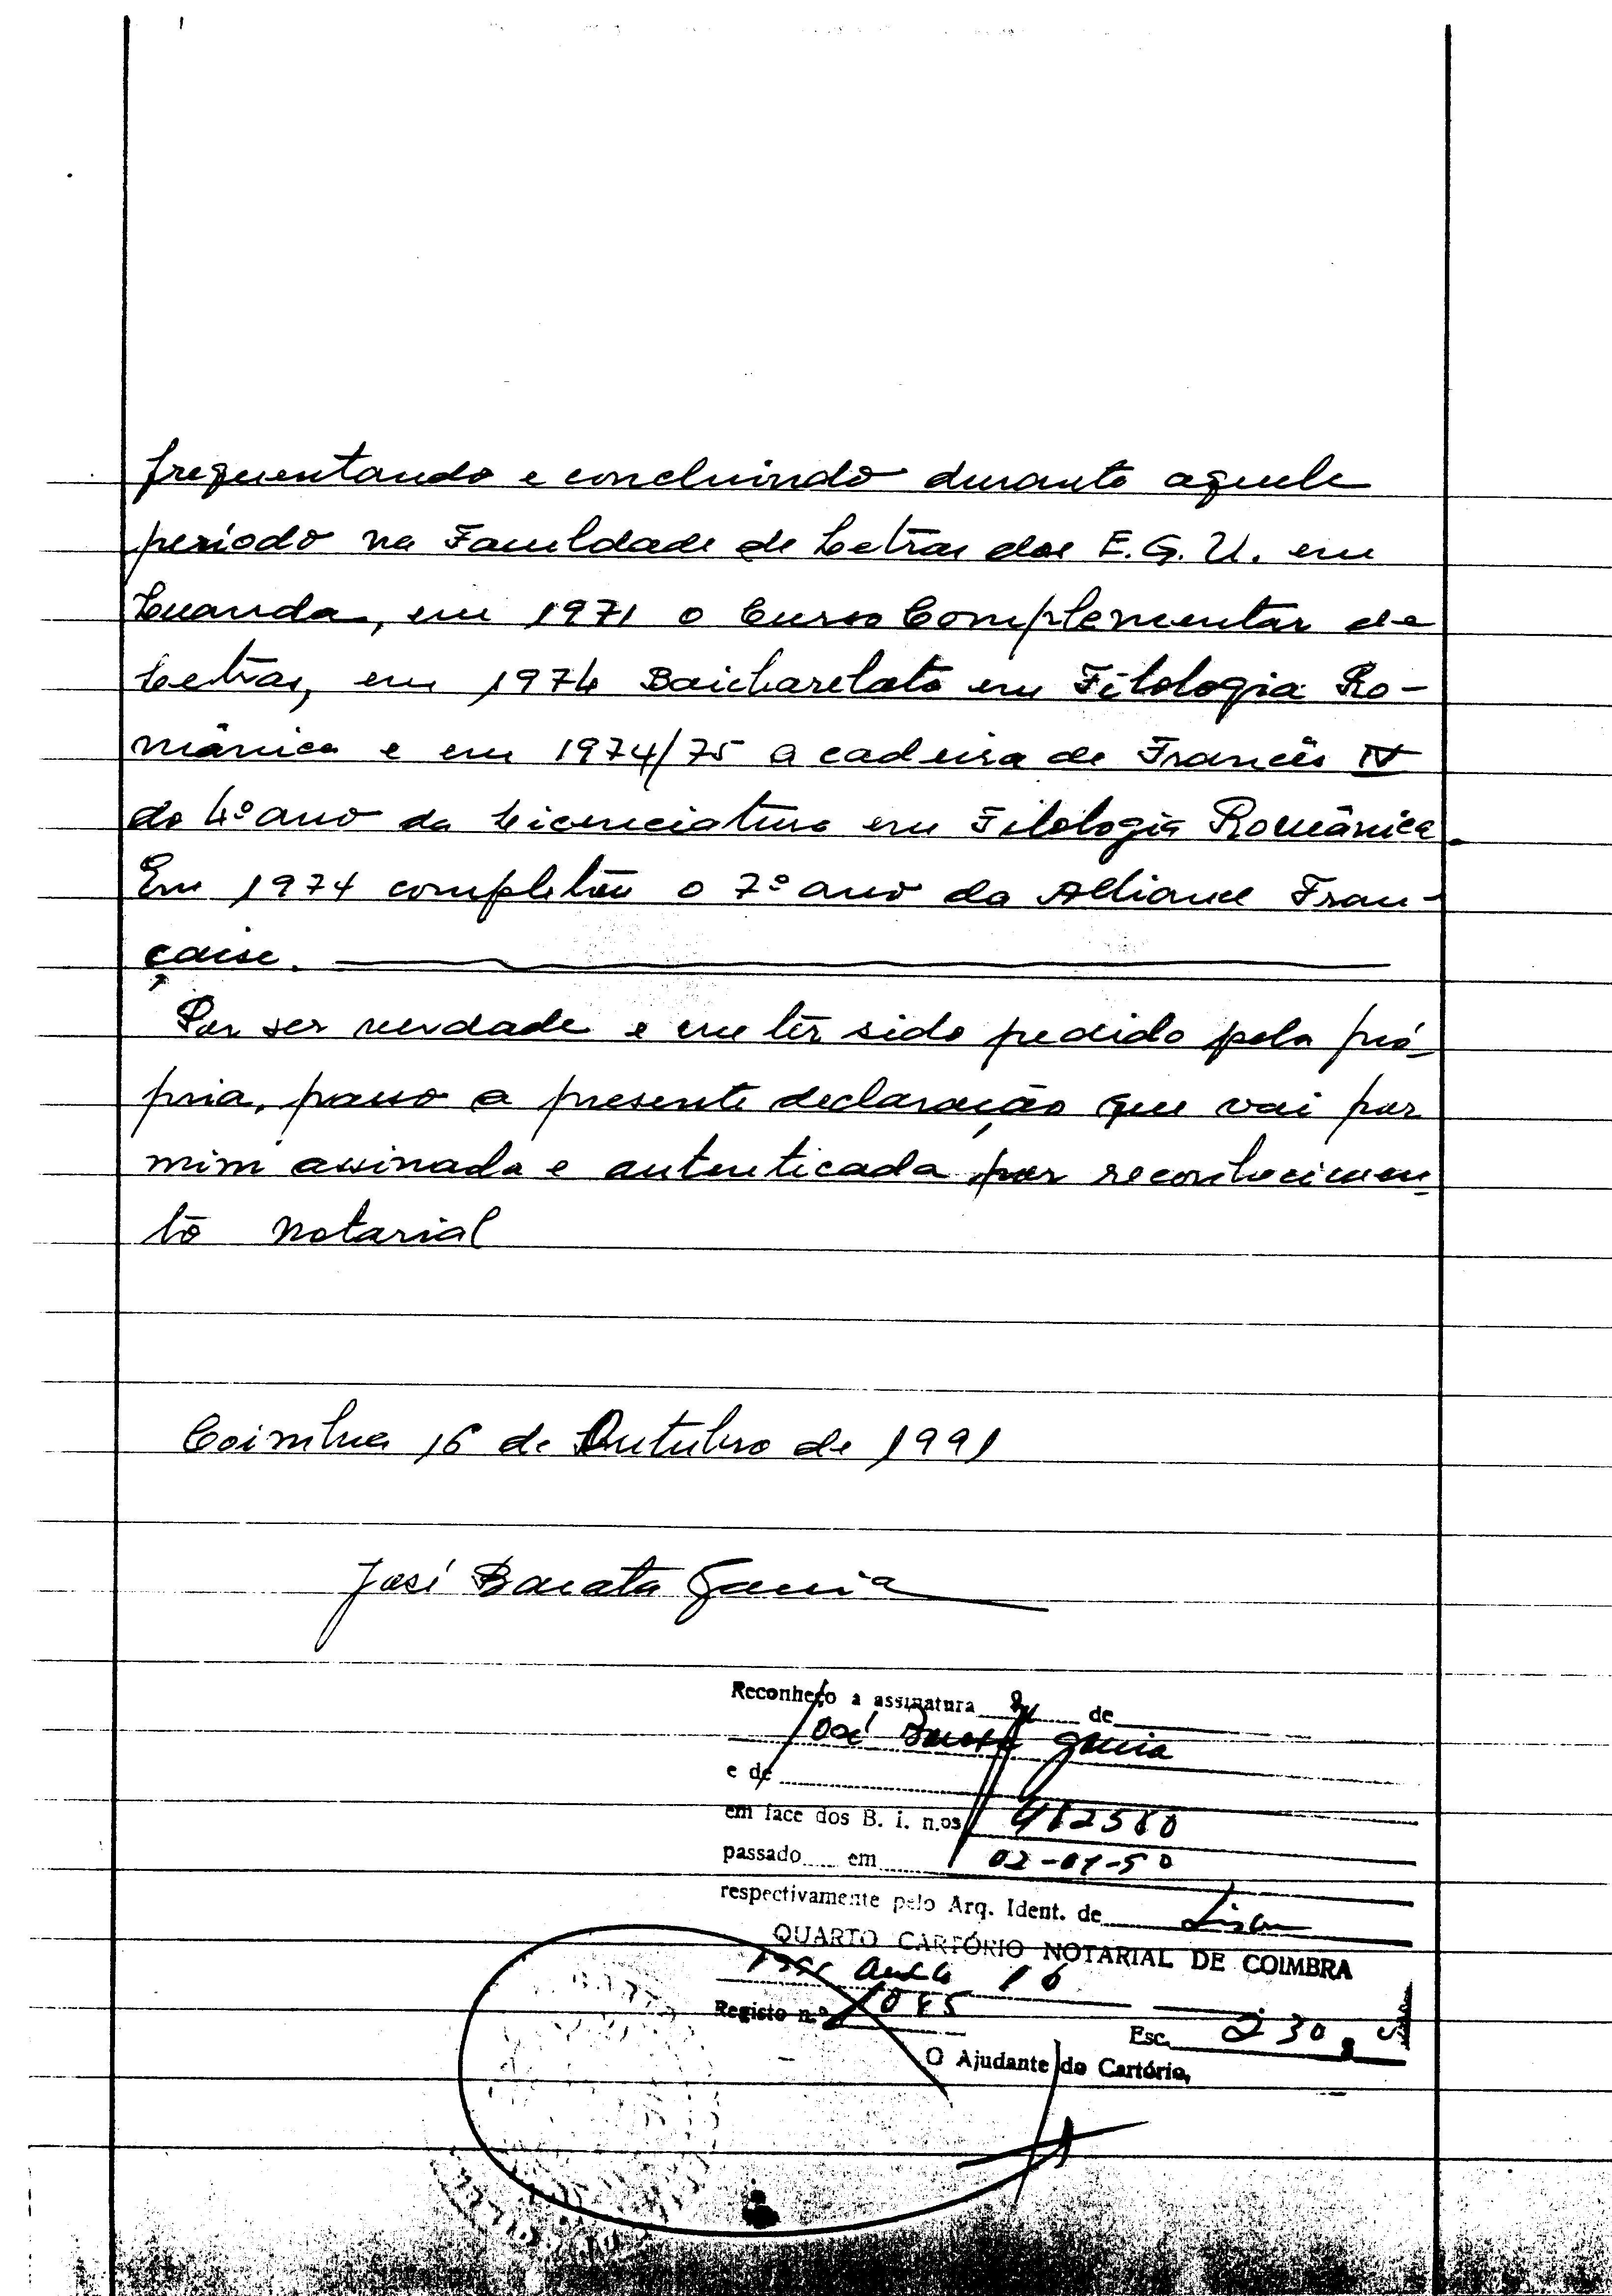 frequentando e concluindo durante aquele
período na Faculdade de Letras dos E.G.U. em
Luanda, em 1971 o Curso Complementar de
Letras, em 1974 Baicharelato em Filologia Ro-
mânica e em 1974/75 a cadeira de Francês IV
do 4º ano da Licenciatura em Filologia Românica.
Em 1974 completou o 7º ano da Alliance Fran-
çaise.
Por ser verdade e me ter sido pedido pela pró-
pria, passo a presente declaração que vai por
mim assinada e autenticada por reconhecimen-
to notarial
Coimbra 16 de Outubro de 1991
José Barata Garcia
Reconheço a assinatura de
José Barata Garcia
e de
em face dos B. I. n.os
passado em 02-01-50
respectivamente pelo Arq. Ident. de Lisboa
QUARTO CARTÓRIO NOTARIAL DE COIMBRA
16
Registo n.º
Esc. 230$
O Ajudante do Cartório,